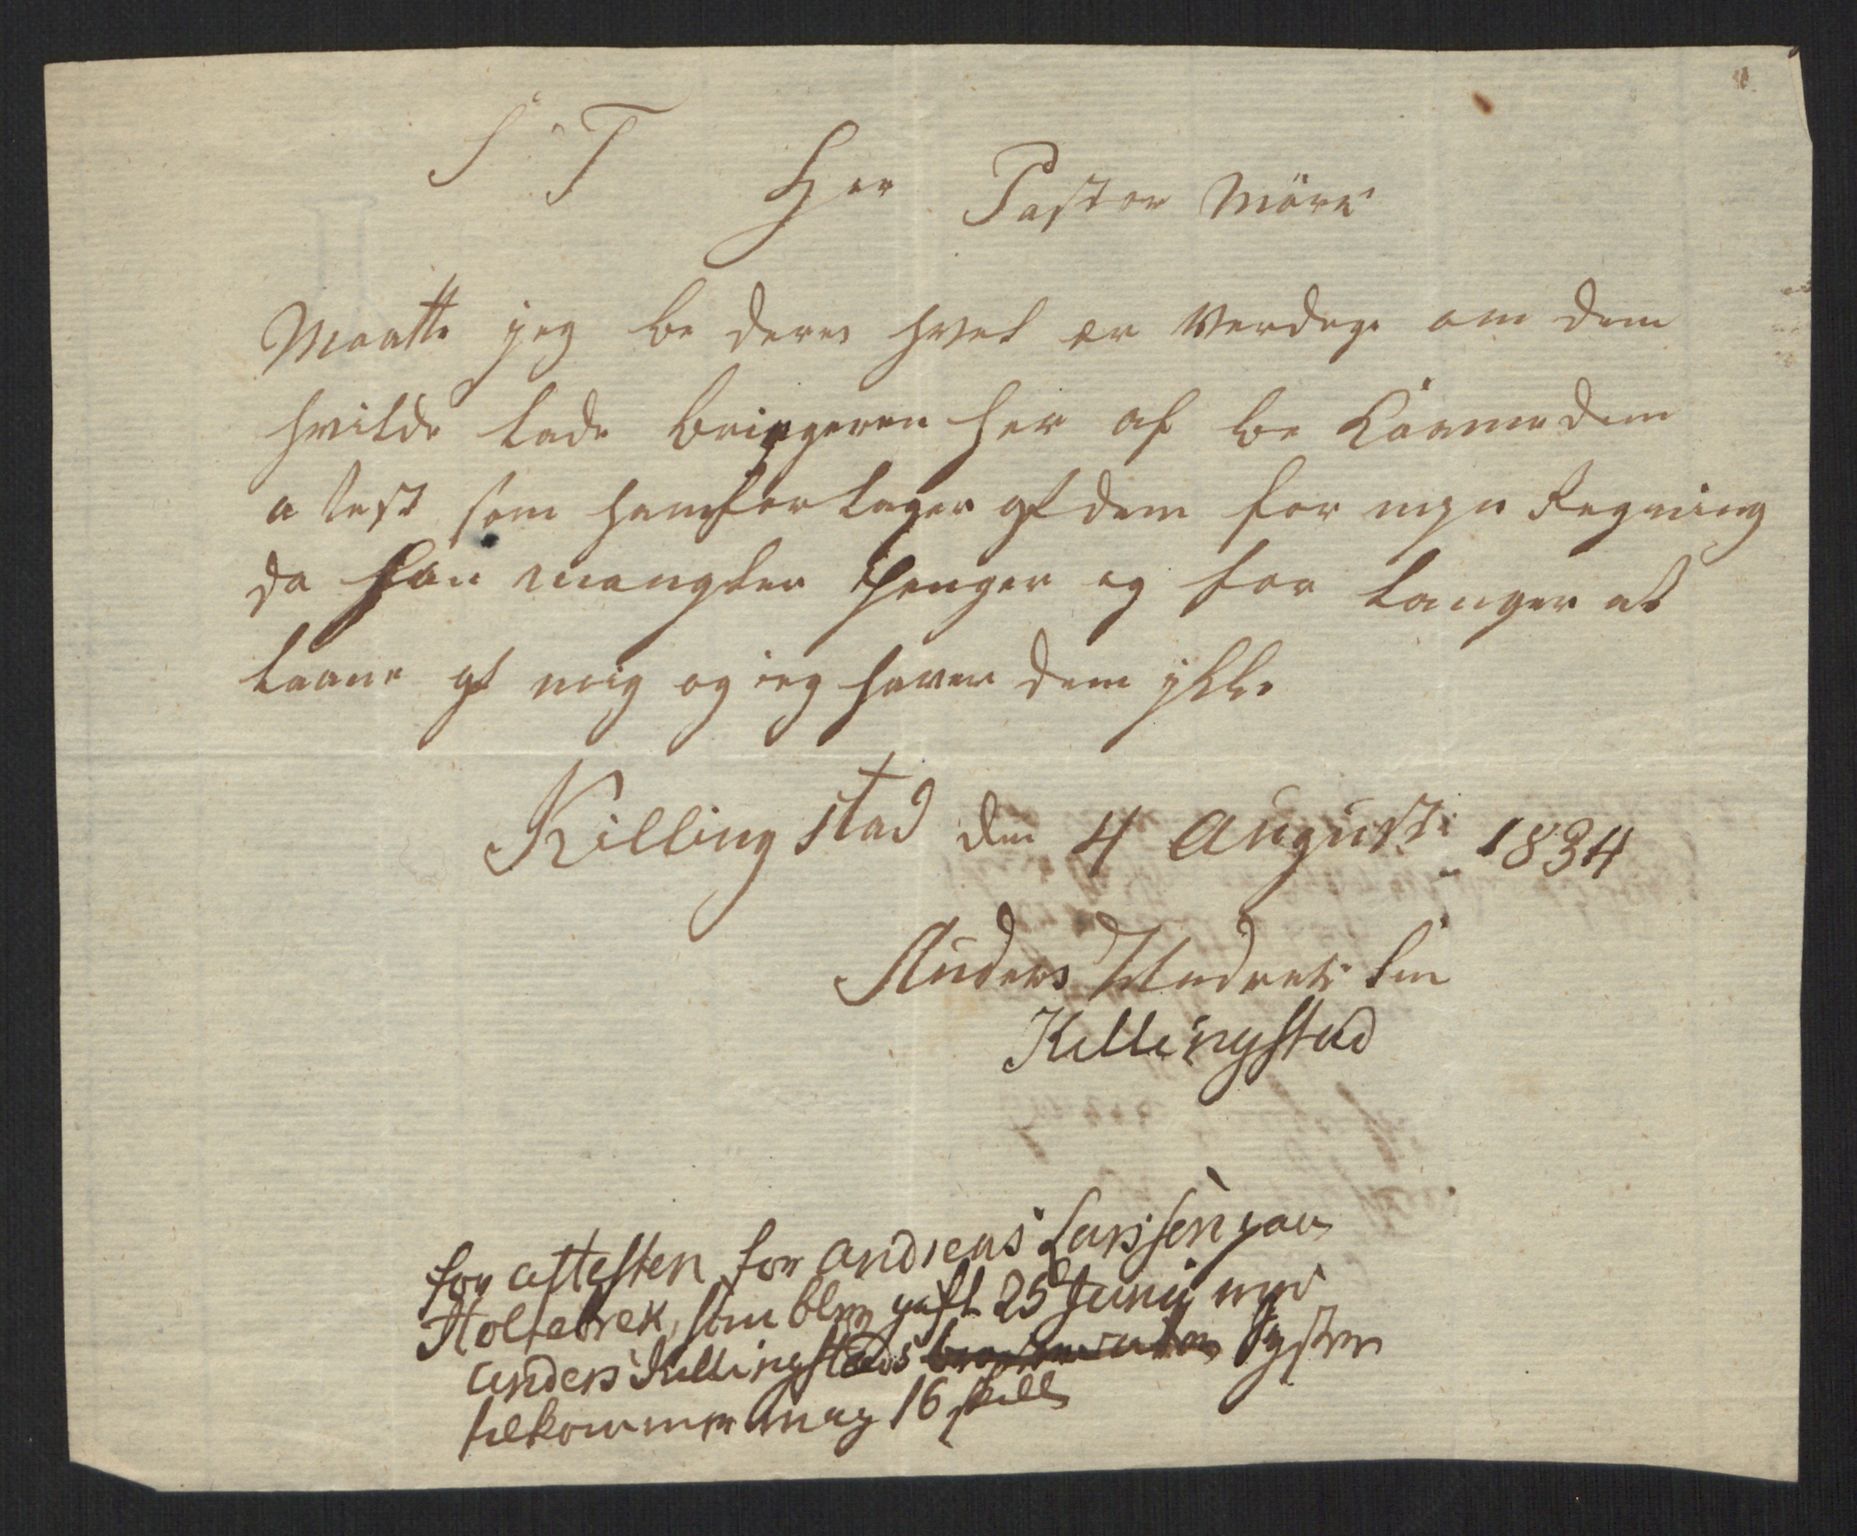 S T Her Pastor Mörk
Maatte jeg be deres hvel ær Verdege om dem
hvilde lade bringeren her af be kaamme dem
a test som han forlager af dem for myn Regning
da han mangler Penger og for langer at
laane af mig og ieg haver dem ikke
Killingstad den 4 August 1834
Anders Andreas Sen
Killingstad
for attesten for Andreas Larssen paa
Holtebrek, som blev gift 25 Junii med
Anders Killingstads Syster
tilkommer mig 16 skill